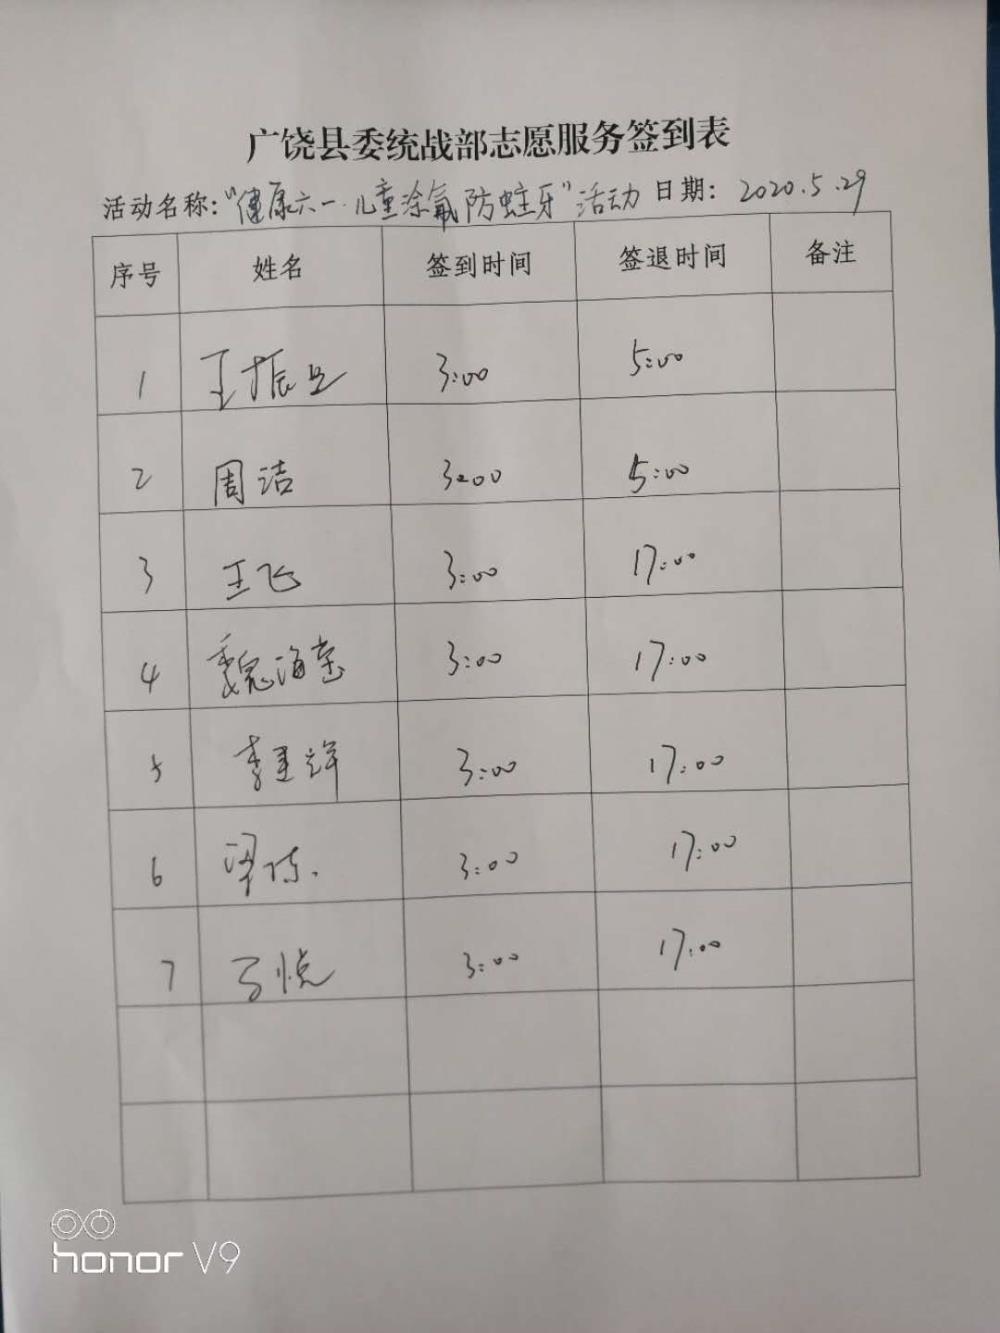 广饶县委统战部志愿服务签到表
活动名称:“健康六一·儿童涂氟防蛀牙”活动 日期: 2020.5.29
序号 姓名 签到时间 签退时间 备注
1 王振 3:00 5:00
2 周洁 3:00 5:00
3 王飞 3:00 17:00
4 魏海棠 3:00 17:00
5 李建祥 3:00 17:00
6 3:00 17:00
7 悦 3:00 17:00
honor V9